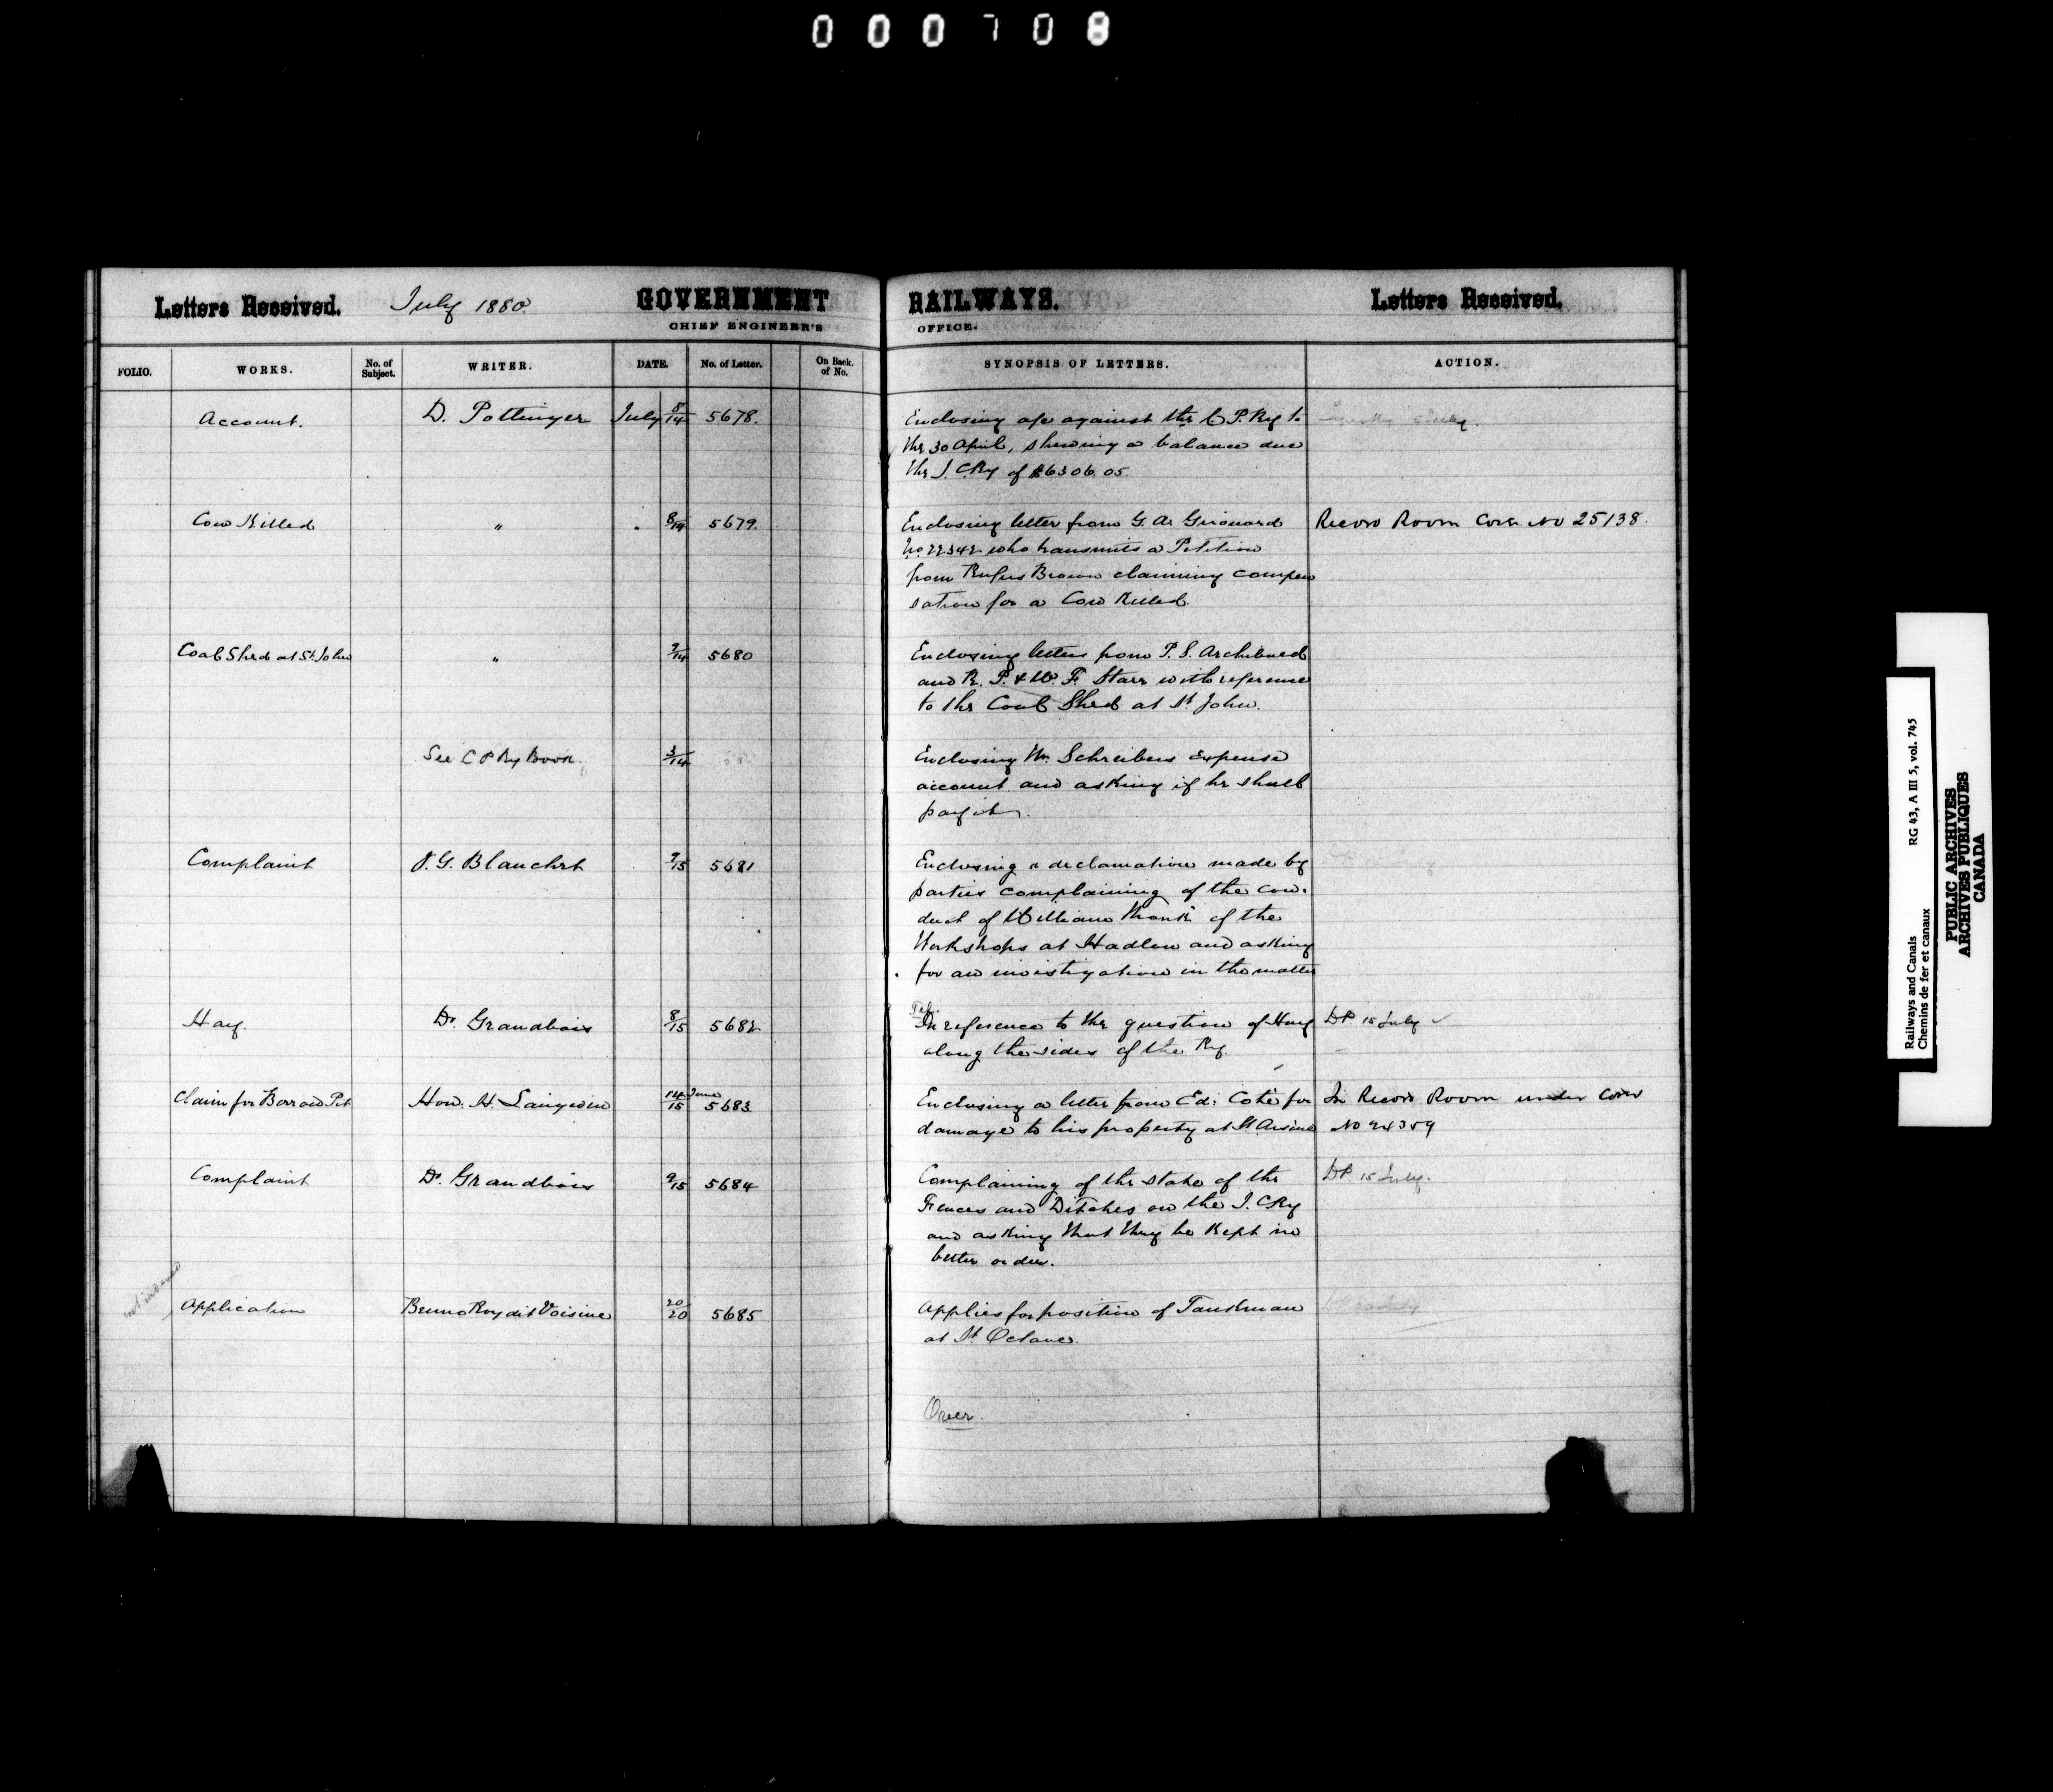 000708
Letters Received. July 1880 GOVERNMENT RAILWAYS. Letters Received.
CHIEF ENGINEER'S OFFICE.
FOLIO. WORKS. No. of Subject. WRITER. DATE. No. of Letter. On Back. of No. SYNOPSIS OF LETTERS. ACTION.
Account. D. Pottinger July 8/14 5678. Enclosing a/c against the C. P. Ry to
the 30 April, shewing a balance due
the I. C Ry of $6306.05.
Cow Killed " " 8/14 5679. Enclosing letter from G. A. Girouard Record Room Cover No 25138.
No 22342 who transmits a Petition
from Rufus Brown claiming compen
sation for a Cow Killed.
Coal Shed at St. John " 9/14 5680 Enclosing letters from P. S. Archibald
and R. P. & W. F. Starr with reference
to the Coal Shed at St John.
See C P Ry Book. 3/14 Enclosing Mr. Schreibers expense
account and asking if he shall
pay it.
Complaint J. G. Blanchet 9/15 5681 Enclosing a declaration made by
parties complaining of the con-
duct of William Monk of the
Workshops at Hadlow and asking
for an investigation in the matter
Hay. Dr. Grandbois 8/15 5682 Tel.
In reference to the question of Hay DP 15 July ✓
along the sides of the Ry.
Claim for Borrow Pit Hon. H. Langevin 14 June/15 5683 Enclosing a letter from Ed. Coté for In Record Room under Cover
damage to his property at St Arsene No 24359
Complaint Dr. Grandbois 9/15 5684 Complaining of the state of the DP 15 July.
Fences and Ditches on the I. C Ry
and asking that they be kept in
better order.
Application Bruno Roy dit Voisine 20/20 5685 Applies for position of Tankman
at St. Octave.
Over.
Railways and Canals RG 43, A III 5, vol. 745
Chemins de fer et canaux
PUBLIC ARCHIVES
ARCHIVES PUBLIQUES
CANADA